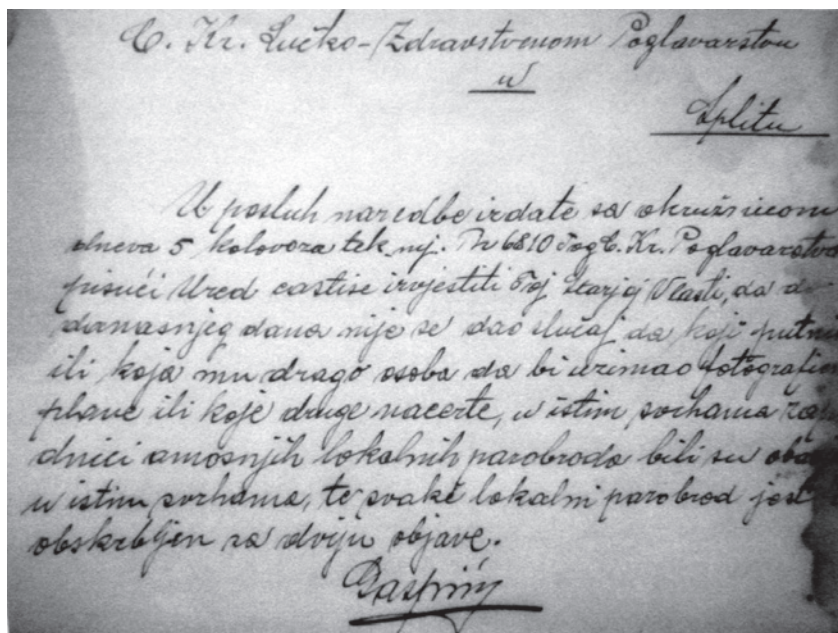 C. Kr. Lučko-Zdravstvenom Poglavarstvu
u
Splitu
U posluh naredbe izdate sa okružnicom
dneva 5 kolovoza tek. mj. 6810 tog C. Kr. Poglavarstva
pisući Ured častise izvjestiti toj Starjoj Vlasti, da do
danasnjeg dana nije se dao slučaj da koji putnik
ili koja mu drago osoba da bi uzimao fotografije
plave ili koje druge nacrte, u istim svrhama
dnici amosnjih lokalnih parobroda bili su
u istim svrhama, te svaki lokalni parobrod jest
obskrbljen sa dviju objave.